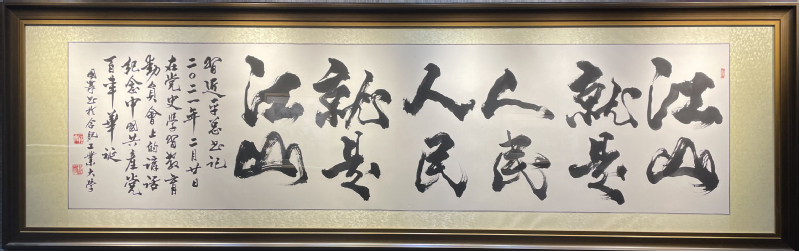 江山
就是
人民
人民
就是
江山
習近平总书记
二〇二一年二月廿日
在党史學習教育
動員會上的講話
紀念中國共產党
百年華诞
國寧书於合肥工業大學